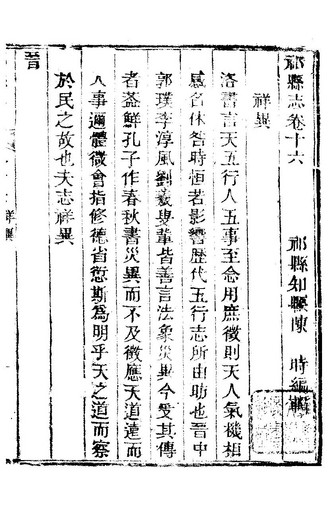 祁縣志卷十六
祁縣知縣陳 時編輯
祥異
洛書言天五行人五事至念用庶徵則天人氣機相
感名休咎時恒若影響歷代五行志所由助也晋中
郭璞李淳風劉羲叟輩皆善言法象災異今幾其傳
者葢鮮孔子作春秋書災異而不及徵應天道遠而
人事邇體微會指修德省愆斯為明乎天之道而察
於民之故也夫志祥異
晉
祥異